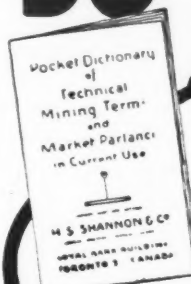 Pocket Dictionary
of
Technical
Mining Terms
and
Market Parlance
in Current Use
H. S. SHANNON & Co
ROYAL BANK BUILDING
TORONTO 1 CANADA